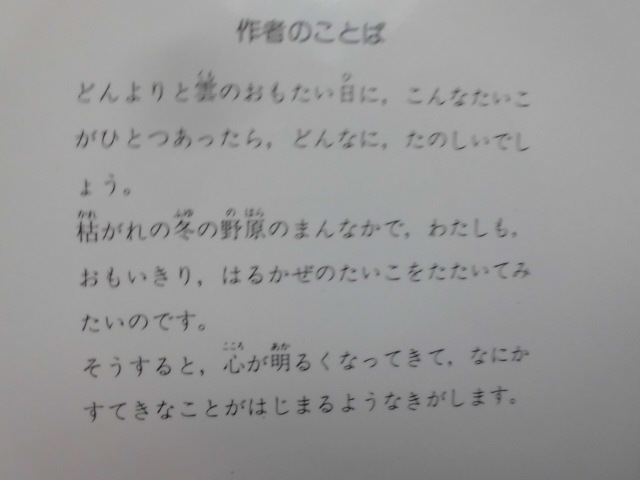 作者のことば
どんよりと雲のおもたい日に，こんなたいこ
がひとつあったら，どんなに，たのしいでし
ょう。
枯がれの冬の野原のまんなかで，わたしも，
おもいきり，はるかぜのたいこをたたいてみ
たいのです。
そうすると，心が明るくなってきて，なにか
すてきなことがはじまるようなきがします。